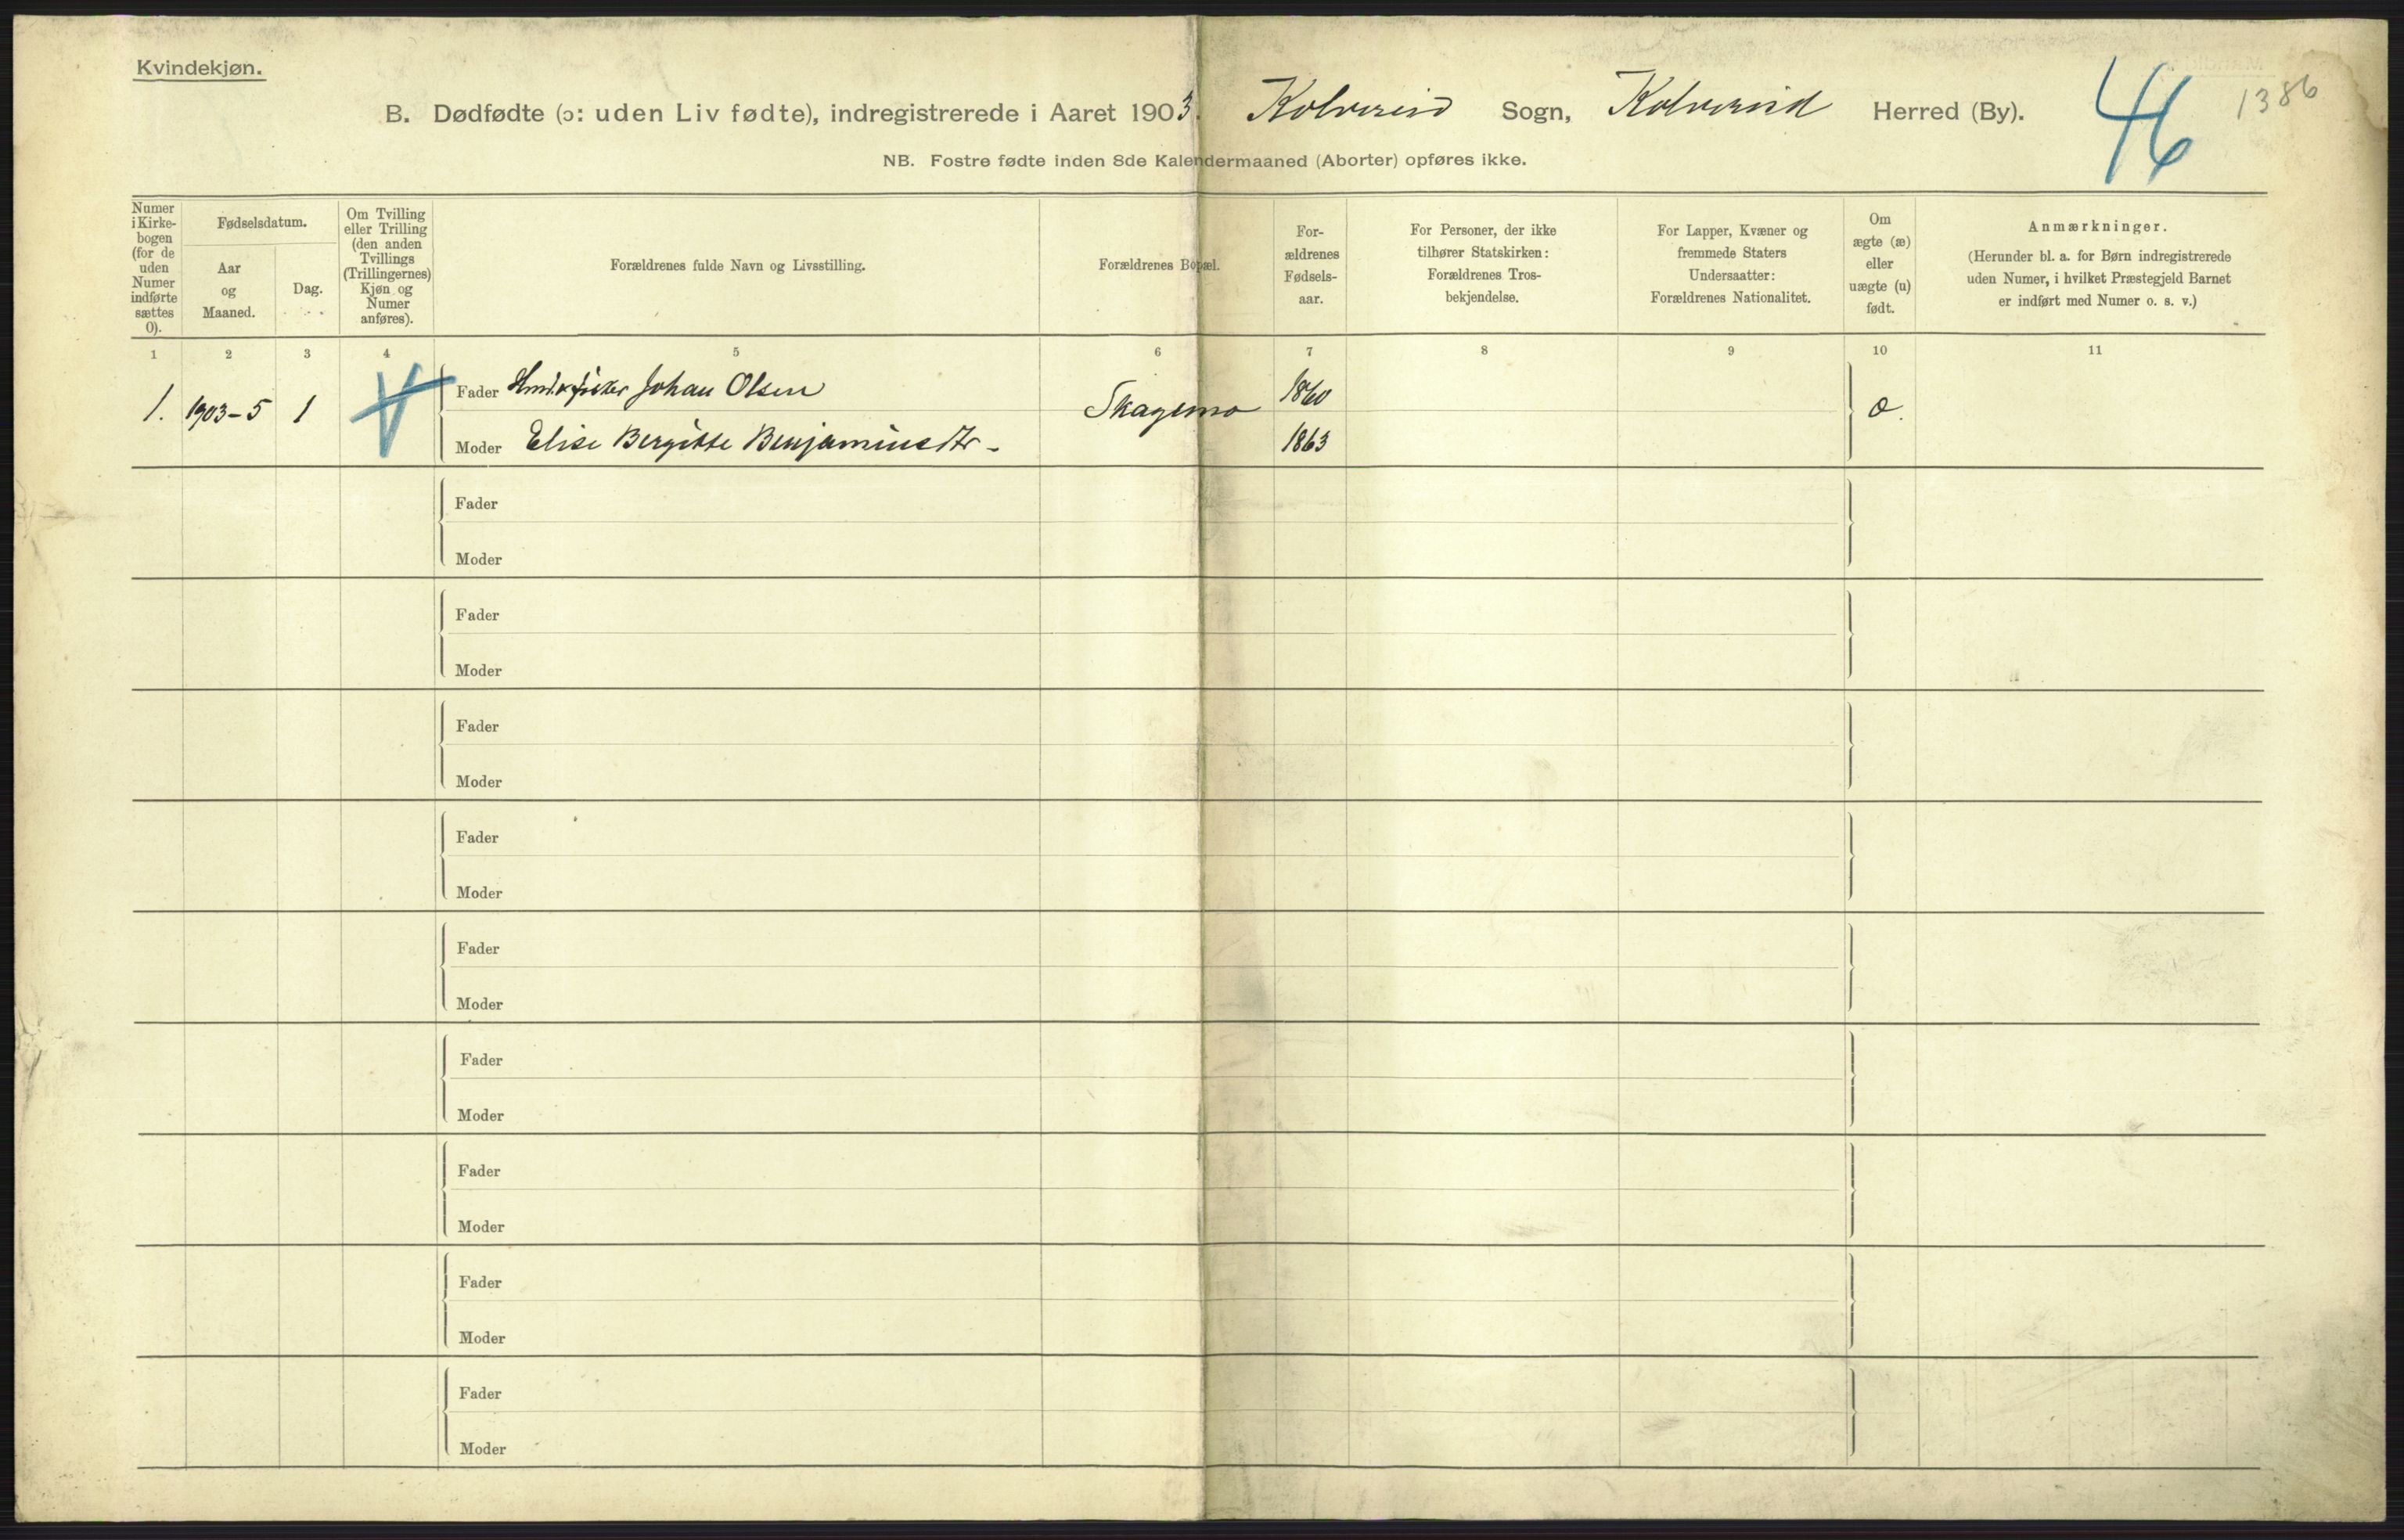 Kvindekjøn.
B. Dødfødte (ɔ: uden Liv fødte), indregistrerede i Aaret 1903. Kolvereid Sogn, Kolvereid Herred (By).
46
1386
NB. Fostre fødte inden 8de Kalendermaaned (Aborter) opføres ikke.
Numer
i Kirke-
bogen
(for de
uden
Numer
indførte
sættes
0).
Fødselsdatum.
Aar
og
Maaned.
Dag.
Om Tvilling
eller Trilling
(den anden
Tvillings
(Trillingernes)
Kjøn og
Numer
anføres).
Forældrenes fulde Navn og Livsstilling.
Forældrenes Bopæl.
For-
ældrenes
Fødsels-
aar.
For Personer, der ikke
tilhører Statskirken:
Forældrenes Tros-
bekjendelse.
For Lapper, Kvæner og
fremmede Staters
Undersaatter:
Forældrenes Nationalitet.
Om
ægte (æ)
eller
uægte (u)
født.
Anmærkninger.
(Herunder bl. a. for Børn indregistrerede
uden Numer, i hvilket Præstegjeld Barnet
er indført med Numer o. s. v.)
1 2 3 4 5 6 7 8 9 10 11
Fader Johan Olsen 1860
1. 1903-5 1 Skagemo
Moder Elise Bergitte Benjaminsdtr - 1863
Fader
Moder
Fader
Moder
Fader
Moder
Fader
Moder
Fader
Moder
Fader
Moder
Fader
Moder
Fader
Moder
Fader
Moder